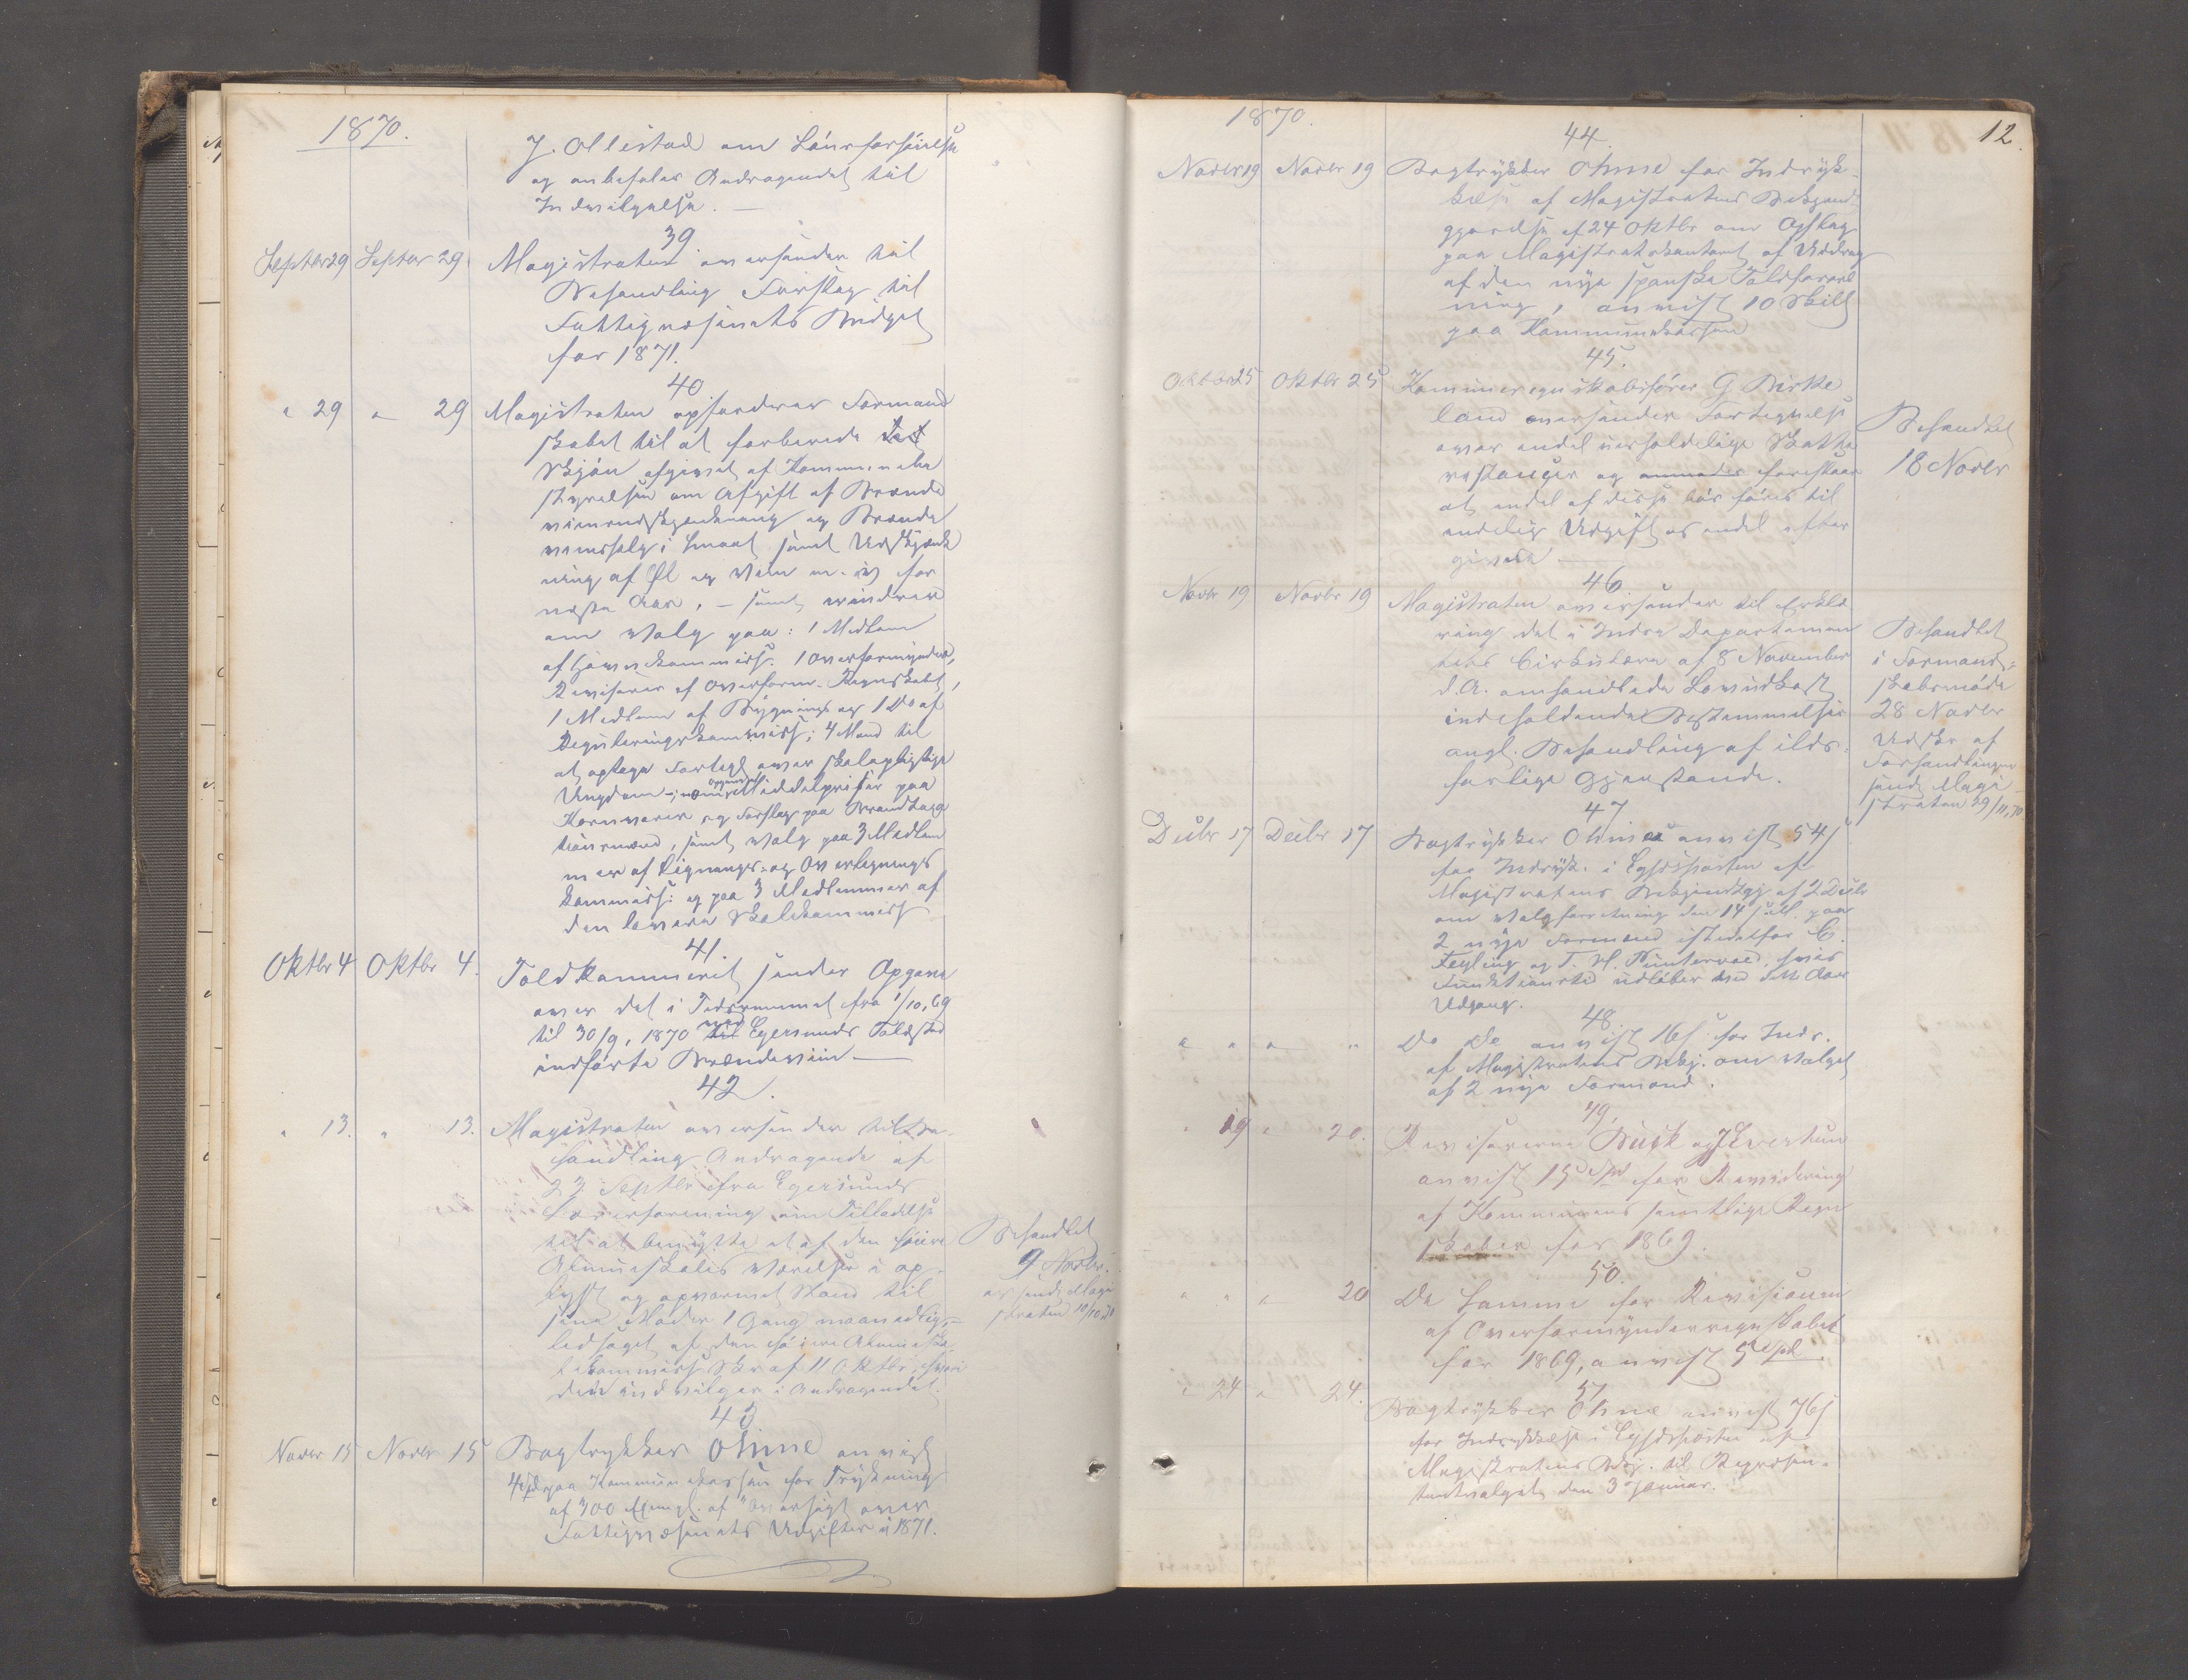 1870.
J. Ollestad om Lönsforhöielse
og anbefaler Andragendet til
Indvilgelse. —
39.
Septbr 29 Septbr 29 Magistraten oversender til
Behandling Forslag til
Fattigvæsenets Budget
for 1871.
40
" 29 " 29 Magistraten opfordrer Formand
skabet til at forberede det
Skjön afgivet af Kommunebe
styrelsen om Afgift af Brænde
viinsudskjænkning og Brænde
viinssalg i Smaat samt Udskjænk
ning af Øl og Viin m. v for
næste Aar, — samt erindrer
om Valg paa: 1 Medlem
af Havnekommiss. 1 Overformynder,
Revisorer af Overform. Regnskabet,
1 Medlem af Bygnings og 1 Do af
Reguleringskommiss; 4 Mænd til
at optage Forteg. over skolepligtige
Ungdom; opgivne Middelpriser paa
Kornvarer og Forslag paa Brandtaxa
tionsmænd, samt Valg paa 3 Medlem
mer af Lignings- og Overlignings
kommiss: og paa 3 Medlemmer af
den lavere Skolekommiss
41.
Oktbr 4 Oktbr 4. Toldkammeret sender Opgave
over det i Tidsrummet fra 1/10, 69
til 30/9, 1870 ved Egersunds Toldsted
indförte Brændeviin —
42.
" 13. " 13. Magistraten oversender til Be
handling Andragende af
23 Septbr fra Egersunds
forening om Tilladelse
til at benytte et af den höiere
Almueskoles Værelser i op-
lyst og opvarmet Stand til
sine Möder 1 Gang maanedlig,
ledsaget af den höiere Almuesko
lekommiss. Skr af 11 Oktbr, hvori
den indvilger i Andragendet.
Behandlet
9 Novbr.
og sendt Magi
straten 10/10 70
43.
Novbr 15 Novbr 15 Bogtrykker Ohme anvist
4 Spd paa Kommunekassen for Trykning
af 300 Exempl. af "Oversigt over
Fattigvæsenets Udgifter i 1871.
1870.
12.
44.
Novbr 19 Novbr 19 Bogtrykker Ohme for Indryk-
kelse af Magistratens Bekjendt-
gjørelse af 24 Oktbr om Opslag
paa Magistratskontoret af Uddrag
af den nye spanske Toldforord
ning, anvist 10 Skill
paa Kommunekassen
45.
Oktbr 25 Oktbr 25 Kommuneregnskabsförer G. Birke
land oversender Fortegnelse
over endel uerholdelige Skatte
restancer og foreslaar
at endel af disse bör föres til
endelig Udgift og endel efter
gives
Behandlet
18 Novbr
46
Novbr 19 Novbr 19 Magistraten oversender til Erklæ
ring det i Indre Departemen
tets Cirkulære af 8 November
d. A. omhandlede Lovudkast
indeholdende Bestemmelser
angl. Behandling af ilds-
farlige Gjenstande.
Behandlet
i Formand-
skabsmöde
28 Novbr
Udskr af
Forhandlingen
sendt Magi
straten 29/11, 70
47
Decbr 17 Decbr 17 Bogtrykker Ohme anvist 54 s
for Indryk. i Egdsposten af
Magistratens Bekjendtgj. af 2 Decbr
om Valgforretning den 14 paa
2 nye Formænd istedetfor C.
Feyling og T. H. Puntervold, hvis
Funktionstid udlöber ved dette Aars
Udgang.
48
" " " " Do Do anvist 16 s. for Indr.
af Magistratens Bekj. om Valget
af 2 nye Formænd.
49.
" 19 " 20. Revisorerne Buck og Sivertsen
anvist 15 Spd for Revidering
af Kommunens samtlige Regn
skaber for 1869.
50.
" " " 20 De samme for Revisionen
af Overformynderregnskabet
for 1869, anvist 5 Spd.
51
" 24 " 24. Bogtrykker Ohme anvist 76 s
for Indrykkelse i Egdsposten af
Magistratens Bekj. til Repræsen-
tantvalget den 3 Januar.